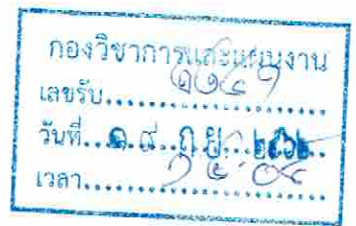 กองวิชาการและแผนงาน
เลขรับ..............
วันที่...๑๙ ก.ย. ๒๕๖๒...
เวลา..............